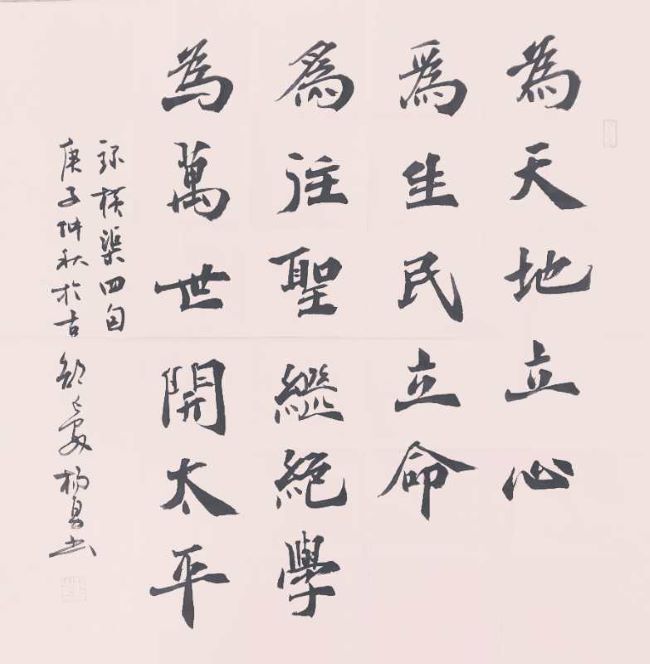 為天地立心
為生民立命
為往聖繼絕學
為萬世開太平
錄橫渠四句
庚子仲秋於古都長安 書